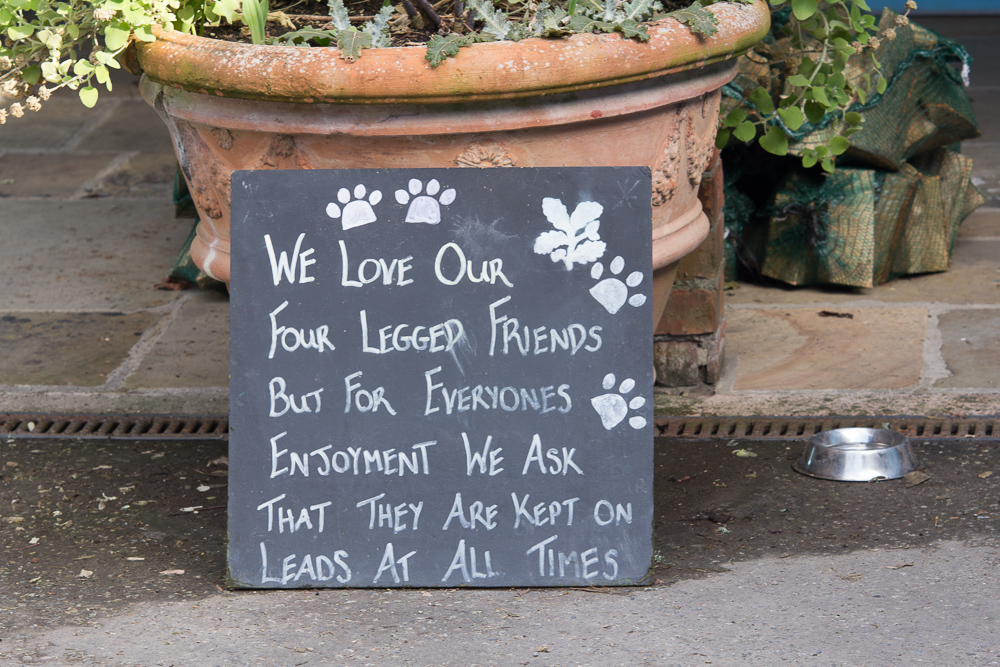 We Love Our
Four Legged Friends
But For Everyones
Enjoyment We Ask
That They Are Kept on
Leads At All Times